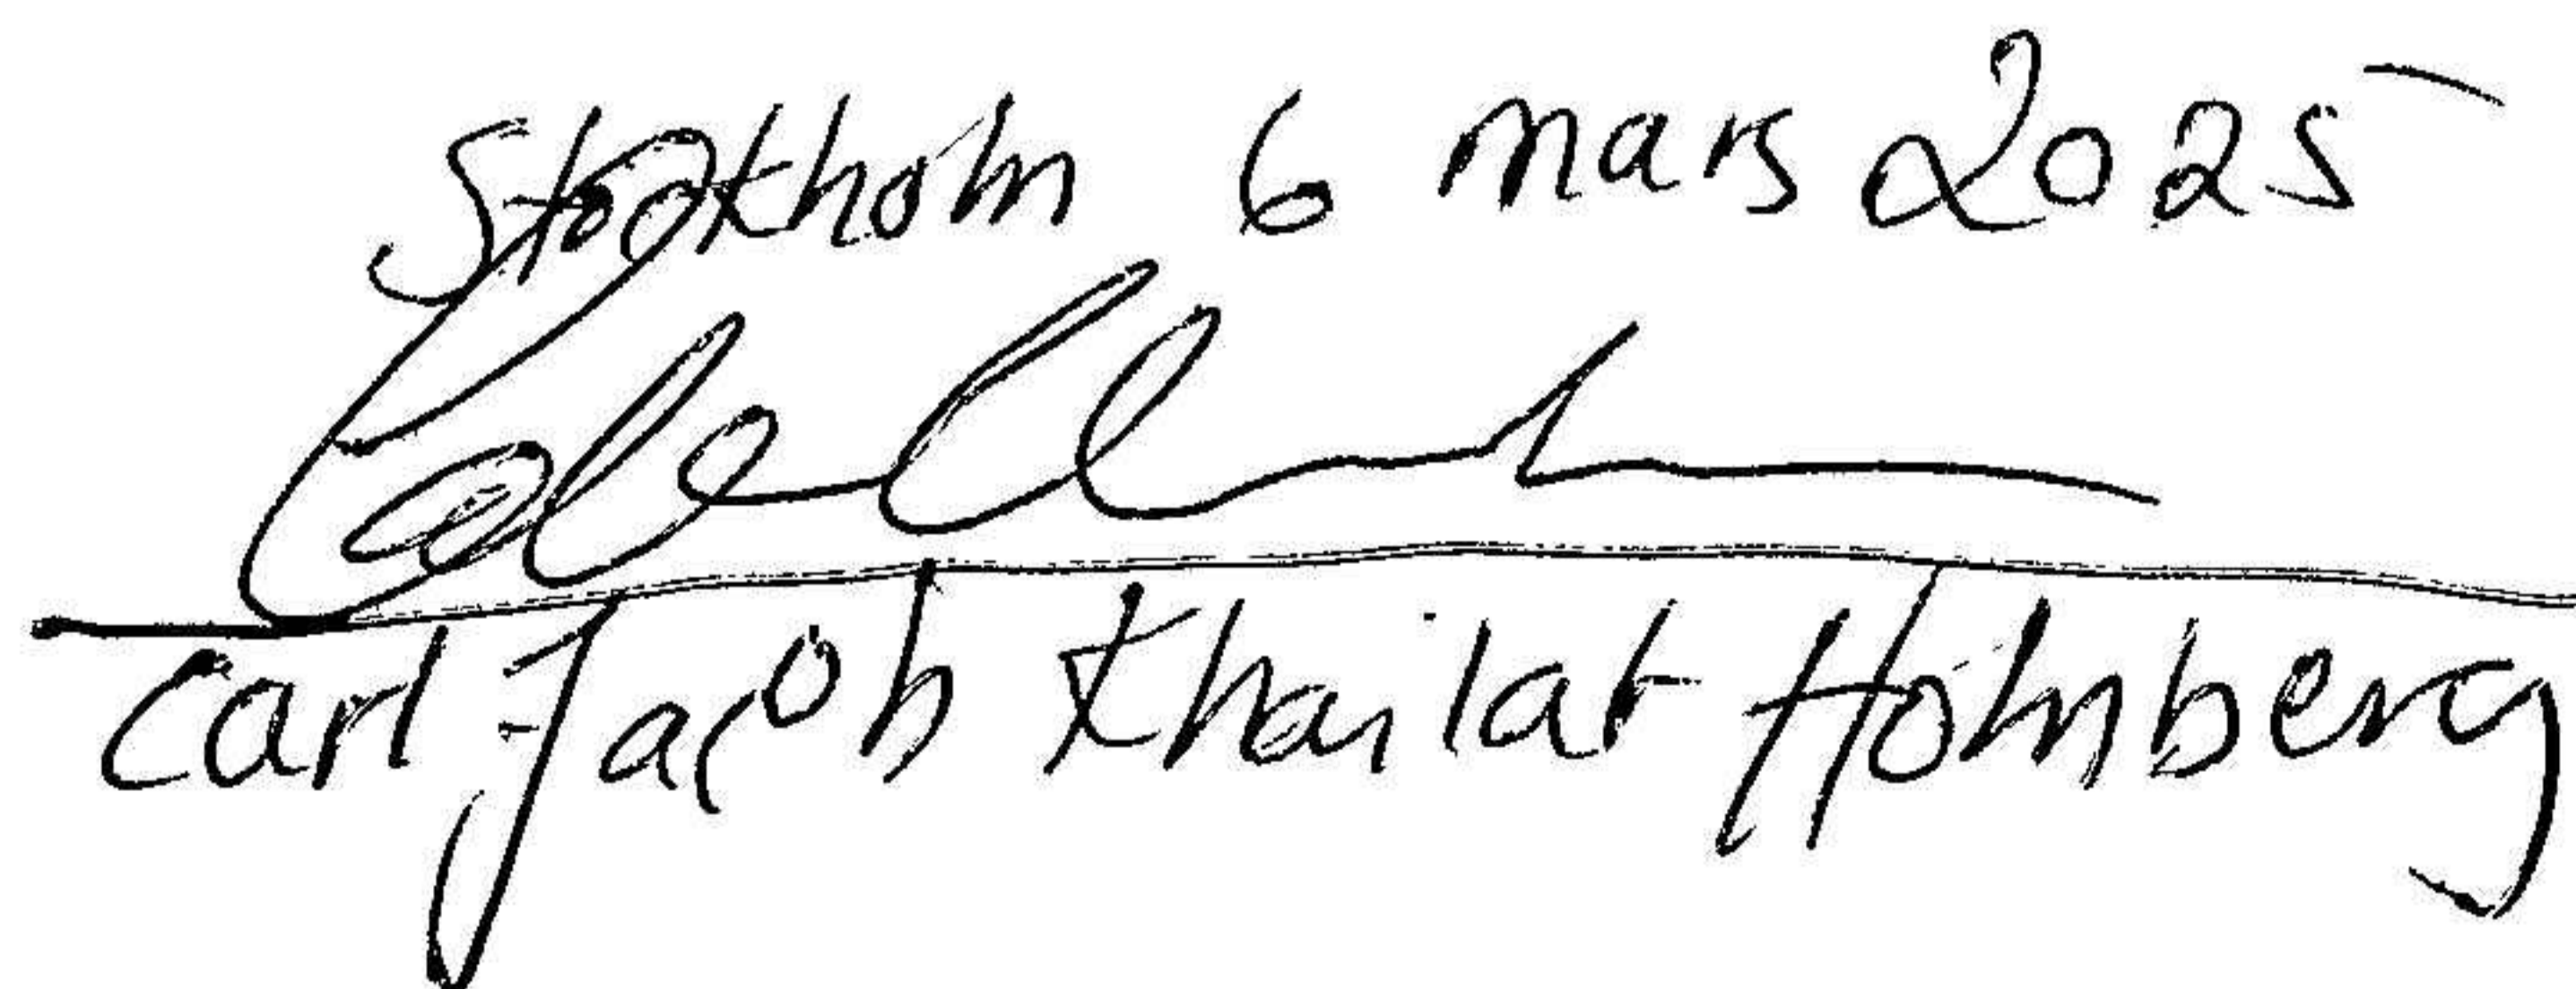 Stockholm 6 mars 2025
Carl Jacob Khailat Holmberg